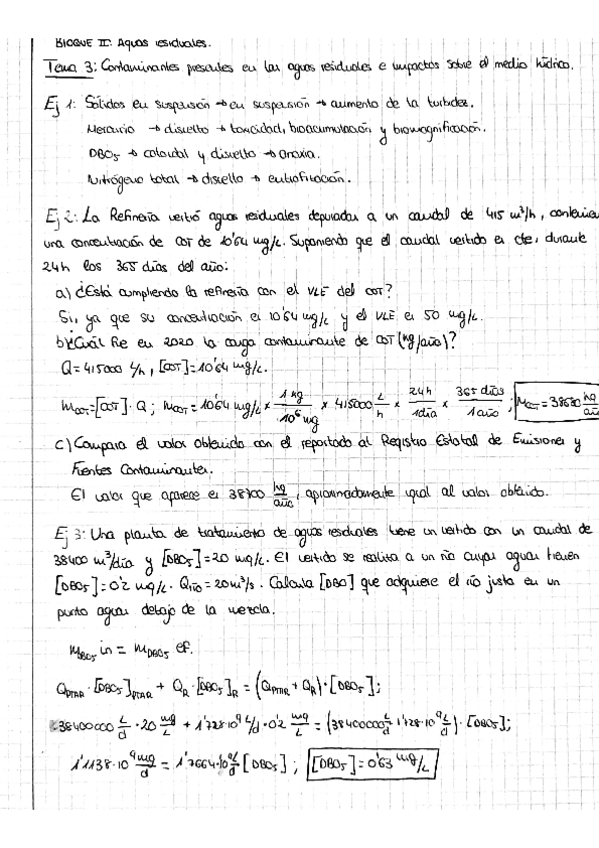 BLOQUE II: Aguas residuales.
Tema 3: Contaminantes presentes en las aguas residuales e impactos sobre el medio hídrico.
Ej 1: Sólidos en suspensión → en suspensión → aumento de la turbidez.
Mercurio → disuelto → toxicidad, bioacumulación y biomagnificación.
DBO5 → coloidal y disuelto → anoxia.
Nitrógeno total → disuelto → eutrofización.
Ej 2: La Refinería vertió aguas residuales depuradas a un caudal de 415 m³/h, contenían
una concentración de COT de 10'64 mg/L. Suponiendo que el caudal vertido es cte, durante
24h los 365 días del año:
a) ¿Está cumpliendo la refinería con el VLE del COT?
Si, ya que su concentración es 10'64 mg/L y el VLE es 50 mg/L.
b) ¿Cuál fue en 2020 la carga contaminante de COT (kg/año)?
Q = 415000 L/h, [COT] = 10'64 mg/L.
mCOT = [COT] · Q ; mCOT = 10'64 mg/L × 1 kg / 10⁶ mg × 415000 L/h × 24h / 1día × 365 días / 1 año ; MCOT = 38680 kg/año
c) Compara el valor obtenido con el reportado al Registro Estatal de Emisiones y
Fuentes Contaminantes.
El valor que aparece es 38700 kg/año, aproximadamente igual al valor obtenido.
Ej 3: Una planta de tratamiento de aguas residuales tiene un vertido con un caudal de
38400 m³/día y [DBO5] = 20 mg/L. El vertido se realiza a un río cuyas aguas tienen
[DBO5] = 0'2 mg/L. Qrío = 20 m³/s. Calcula [DBO] que adquiere el río justo en un
punto aguas debajo de la mezcla.
mDBO5 in = mDBO5 ef.
QPTAR · [DBO5]PTAR + QR · [DBO5]R = (QPTAR + QR) · [DBO5] ;
38400000 L/d · 20 mg/L + 1'728·10⁹ L/d · 0'2 mg/L = (38400000 L/d 1'728·10⁹ L/d) · [DBO5] ;
1'1138·10⁹ mg/d = 1'7664·10⁹ L/d [DBO5] ; [DBO5] = 0'63 mg/L